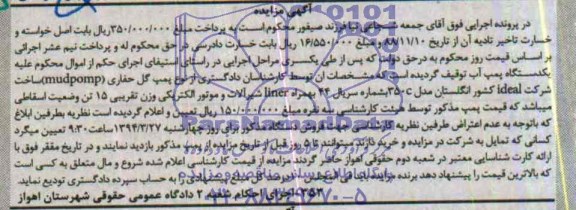 آگهی مزایده
در پرونده اجرایی فوق آقای جمعه شجاعی نیا فرزند صیفور محکوم است به پرداخت مبلغ ۳۵۰/۰۰۰/۰۰۰ ریال بابت اصل خواسته و
خسارت تاخیر تادیه آن از تاریخ ۸۸/۱۱/۱۰ و مبلغ ۱۶/۵۵۰/۰۰۰ ریال بابت خسارت دادرسی در حق محکوم له و پرداخت نیم عشر اجرائی
بر اساس قیمت روز محکوم به در حق دولت که پس از طی یکسری مراحل اجرایی در راستای استیفای اجرای حکم از اموال محکوم علیه
یکدستگاه پمپ آب توقیف گردیده است که مشخصات آن توسط کارشناسان دادگستری از نوع پمپ گل حفاری (mudpomp) ساخت
شرکت ideal کشور انگلستان مدل c-۳۵۰ شماره سریال ۴۴ بهمراه liner شیرآلات و موتور الکتریکی وزن تقریبی ۱۵ تن وضعیت اسقاطی
میباشد که قیمت پمپ مذکور توسط هیئت کارشناسی سه نفره مبلغ ۱۵۰/۰۰۰/۰۰۰ ریال تعیین و اعلام گردیده است نظریه بطرفین ابلاغ
که باتوجه به عدم اعتراض طرفین نظریه کارشناسی جهت فروش دستگاه مذکور برای روز چهارشنبه ۱۳۹۴/۳/۲۷ ساعت ۹:۳۰ تعیین میگردد
کسانی که تمایل به شرکت در مزایده و خرید دارند میتوانند تا ۵ روز قبل از تاریخ مزایده از پمپ مذکور بازدید نمایند و در تاریخ مقرر فوق با
ارائه کارت شناسایی معتبر در شعبه دوم حقوقی اهواز حاضر گردند مزایده از قیمت کارشناسی اعلام شده شروع و مال متعلق به کسی است
که بالاترین قیمت را پیشنهاد دهد برنده مزایده ده درصد کل مبلغ پیشنهادی را به حساب سپرده دادگستری تودیع نماید.
۳۵۲ - اجرای احکام شعبه ۲ دادگاه عمومی حقوقی شهرستان اهواز